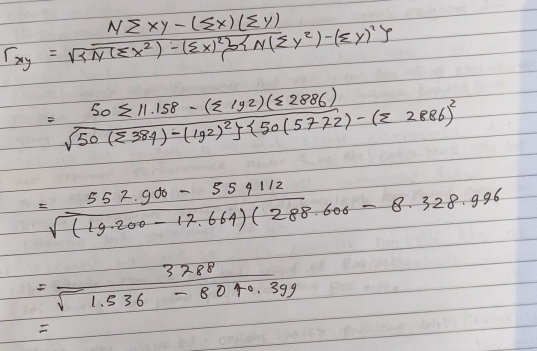 rxy = N Σ xy - (Σx) (Σy)
√{N(Σx²) - (Σx)²}{N(Σy²) - (Σy)²}
= 50 Σ 11.158 - (Σ 192) (Σ 2886)
√50 (Σ 384) - (192)²}{50 (5772) - (Σ 2886)²
= 557.900 - 554112
√(19.200 - 17.664) (288.600 - 8.328.996
= 3788
√ 1.536 - 8040.399
=